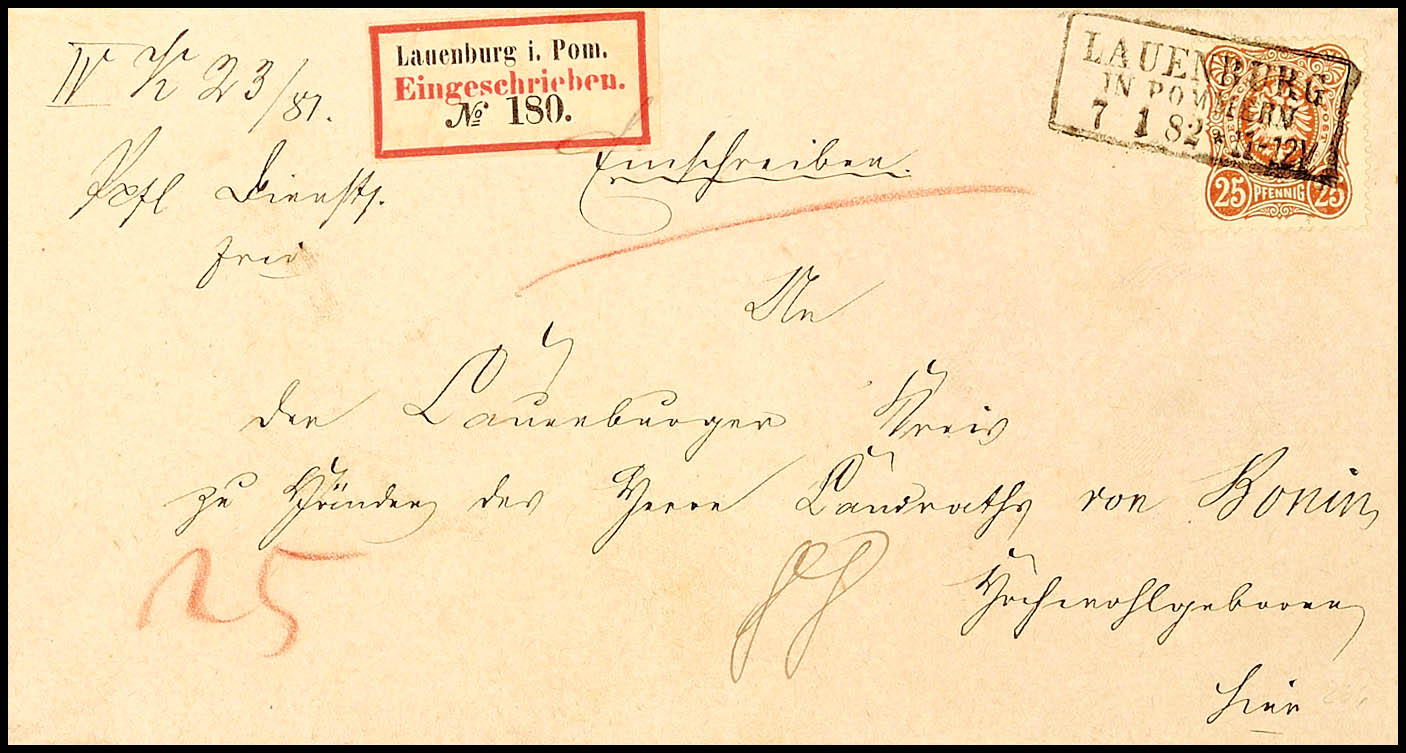 IV K 23/81.
Lauenburg i. Pom.
Eingeschrieben.
№ 180.
LAUENBURG
IN POMMERN
7 1 82 * 11-12V
25 PFENNIG 25
Dienst
frei
Einschreiben.
An
den Lauenburger Kreis
zu Händen des Herrn Landraths von Bonin
25
Hochwohlgeboren
hier